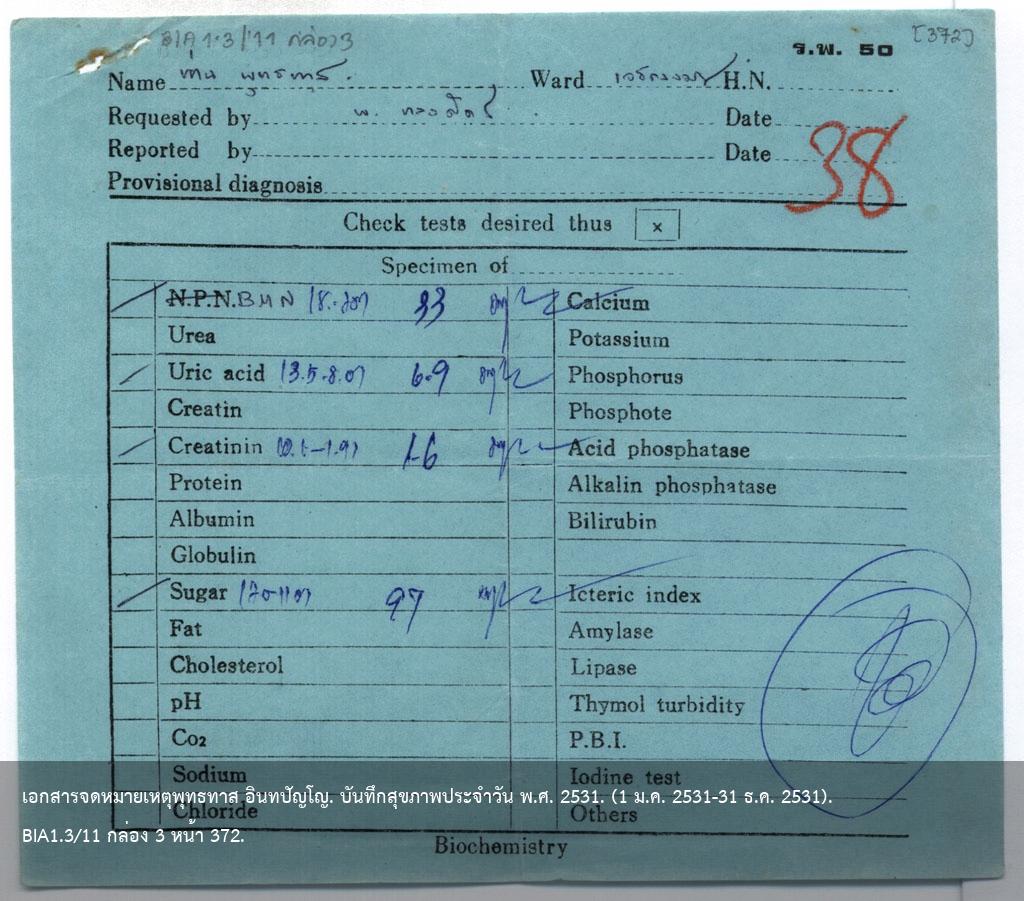 BIA 1.3/11 กล่อง 3
[372]
ร.พ. 50
Name ท่าน พุทธทาส Ward H.N.
Requested by พ. Date
Reported by Date
38
Provisional diagnosis
Check tests desired thus x
Specimen of
N.P.N. BUN 33 Calcium
Urea Potassium
Uric acid 6.9 Phosphorus
Creatin Phosphote
Creatinin 1.6 Acid phosphatase
Protein Alkalin phosphatase
Albumin Bilirubin
Globulin
Sugar 97 Icteric index
Fat Amylase
Cholesterol Lipase
pH Thymol turbidity
Co2 P.B.I.
Sodium Iodine test
เอกสารจดหมายเหตุพุทธทาส อินทปัญโญ. บันทึกสุขภาพประจำวัน พ.ศ. 2531. (1 ม.ค. 2531-31 ธ.ค. 2531).
Chloride Others
BIA1.3/11 กล่อง 3 หน้า 372.
Biochemistry